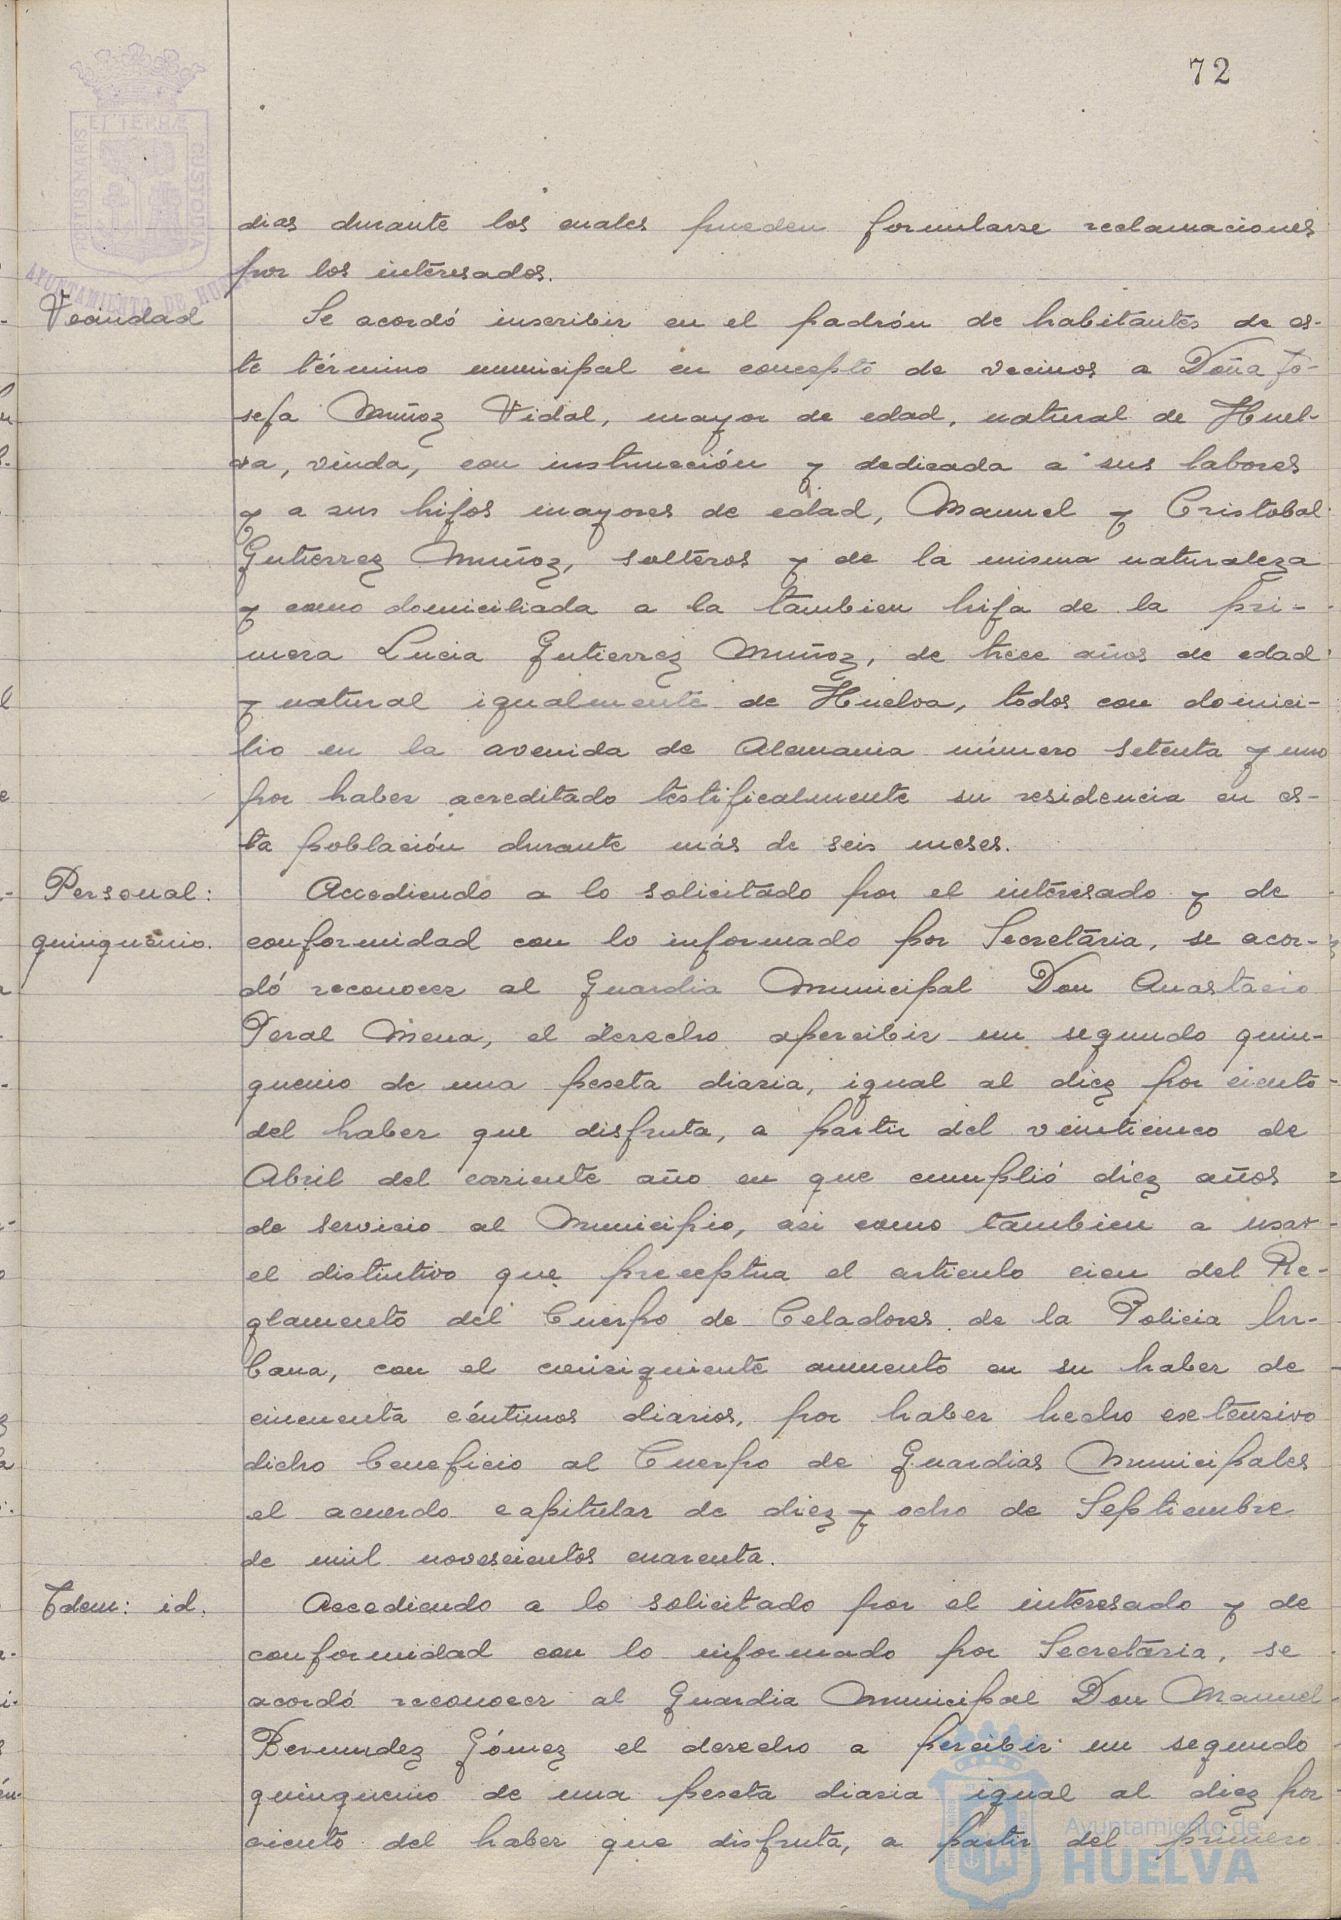 72
PORTUS MARIS ET TERRÆ CUSTODIA
AYUNTAMIENTO DE HUELVA
dias durante los cuales pueden formularse reclamaciones
por los interesados.
Vecindad
Se acordó inscribir en el padrón de habitantes de es-
te término municipal en concepto de vecinos a Doña Jo-
sefa Muñoz Vidal, mayor de edad, natural de Huel-
va, viuda, con instrucción y dedicada a sus labores
y a sus hijos mayores de edad, Manuel y Cristobal
Gutierrez Muñoz, solteros y de la misma naturaleza
y como domiciliada a la tambien hija de la pri-
mera Lucia Gutierrez Muñoz, de trece años de edad
y natural igualmente de Huelva, todos con domici-
lio en la avenida de Alemania número setenta y uno
por haber acreditado testificalmente su residencia en es-
ta población durante más de seis meses.
Personal:
quinquenio.
Accediendo a lo solicitado por el interesado y de
conformidad con lo informado por Secretaria, se acor-
dó reconocer al Guardia Municipal Don Anastacio
Peral Mena, el derecho apercibir un segundo quin-
quenio de una peseta diaria, igual al diez por ciento
del haber que disfruta, a partir del veinticinco de
Abril del corriente año en que cumplió diéz años
de servicio al Municipio, asi como tambien a usar
el distintivo que preceptua el articulo cien del Re-
glamento del Cuerpo de Celadores de la Policia Ur-
bana, con el consiguiente aumento en su haber de
cincuenta céntimos diarios, por haber hecho extensivo
dicho beneficio al Cuerpo de Guardias Municipales
el acuerdo capitular de diez y ocho de Septiembre
de mil novescientos cuarenta.
Idem: id.
Accediendo a lo solicitado por el interesado y de
conformidad con lo informado por Secretaria, se
acordó reconocer al Guardia Municipal Don Manuel
Bermudez Gómez el derecho a percibir un segundo
quinquenio de una peseta diaria igual al diez por
ciento del haber que disfruta, a partir del primero
Ayuntamiento de
HUELVA